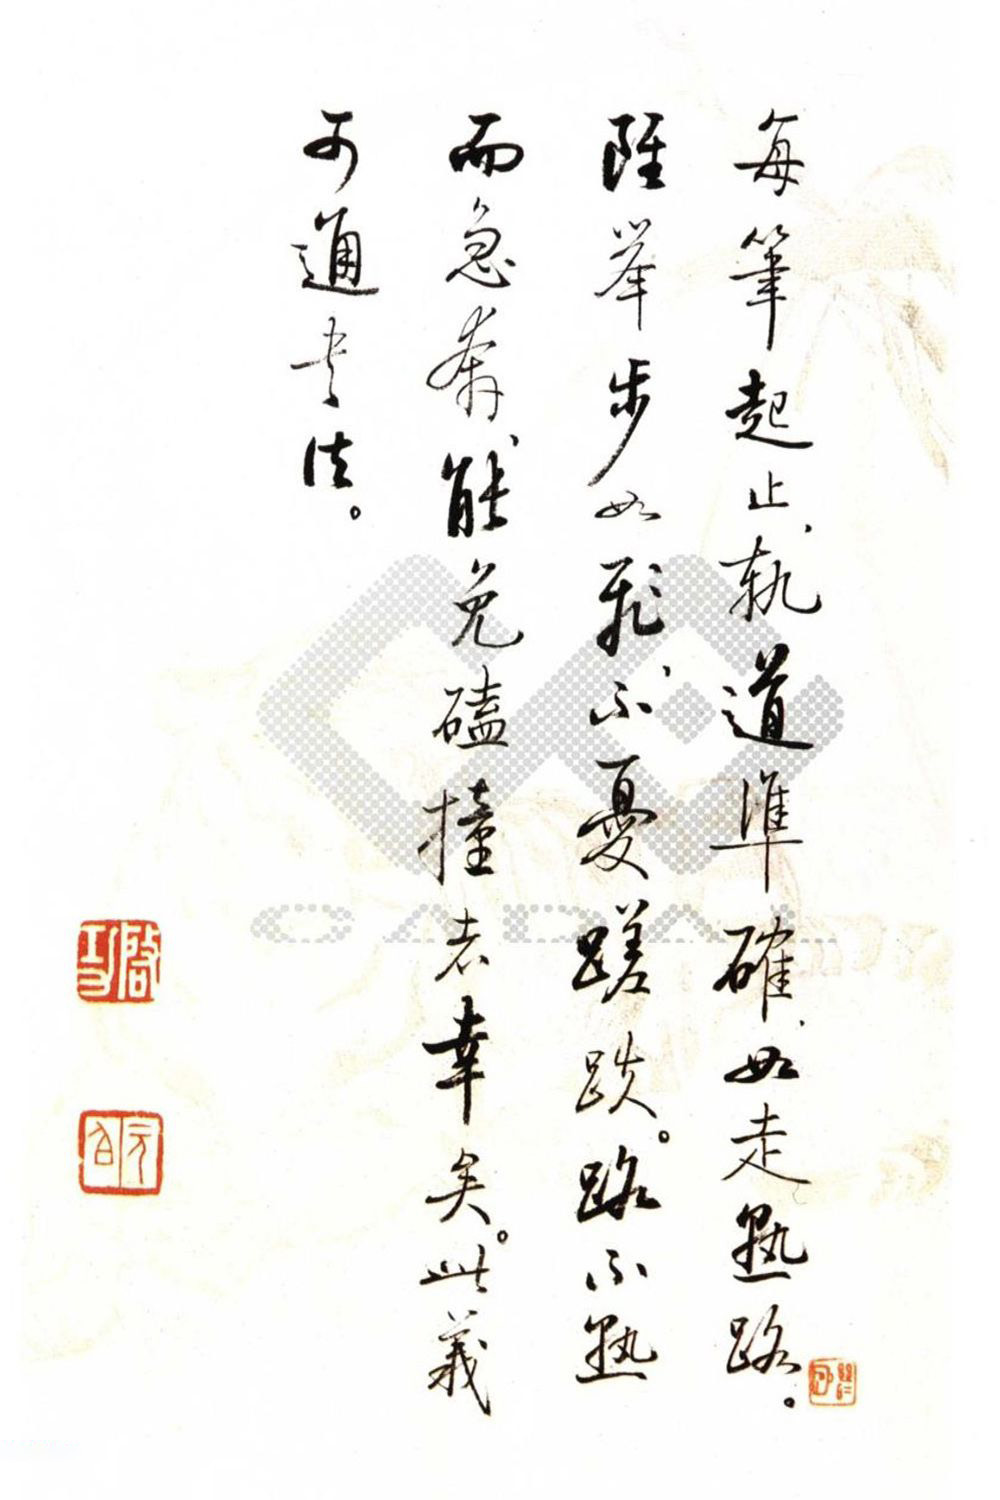 每筆起止、軌道準確、如走熟路。
雖舉步如飛、不憂蹉跌。路不熟
而急奔、能免磕撞者幸矣。此義
可通書法。
啓功
元白
CADAL